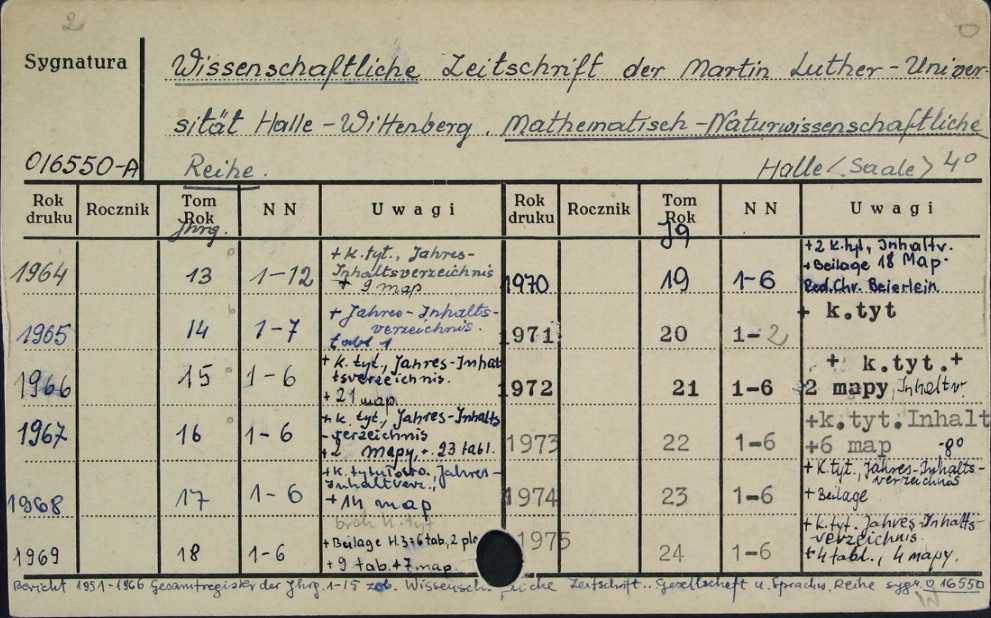 2
Sygnatura
016550-A
Wissenschaftliche Zeitschrift der Martin Luther-Univer-
sität Halle-Wittenberg. Mathematisch-Naturwissenschaftliche
Reihe. Halle <Saale> 4°
Rok druku Rocznik Tom Rok Jhrg. NN Uwagi Rok druku Rocznik Tom Rok Jg NN Uwagi
1964 13 1-12 + k.tyt., Jahres-
Inhaltsverzeichnis
+ 9 map
1965 14 1-7 + Jahres-Inhalts-
verzeichnis.
tabl 1
1966 15 1-6 + k. tyt., Jahres-Inhal
tsverzeichnis.
+ 21 map
1967 16 1-6 + k. tyt., Jahres-Inhalts
-verzeichnis
+2 mapy, + 23 tabl.
1968 17 1-6 Jahres-
Inhaltverz.,
+ 14 map
brak k.tyt
1969 18 1-6 + Beilage H.3+6 tab, 2 pla
+ 9 tab.+7 map.
1970 19 1-6 +2 k.tyt, Inhaltv.
+Beilage 18 Map.
Red. Chr. Beierlein
1971 20 1-2 + k.tyt
1972 21 1-6 + k.tyt.+
2 mapy, Inhaltv.
1973 22 1-6 +k.tyt.Inhalt
+6 map -8°
1974 23 1-6 + k.tyt., Jahres-Inhalts-
verzeichnis
+ Beilage
1975 24 1-6 + k.tyt. Jahres-Inhalts-
-verzeichnis.
+ 4 tabl., 4 mapy.
Bericht 1951-1966 Gesamtregister der Jhrg. 1-15 zob. Wissensch. Zeitschrift.. Gesellschaft u. Sprachw. Reihe sygn. O 16550